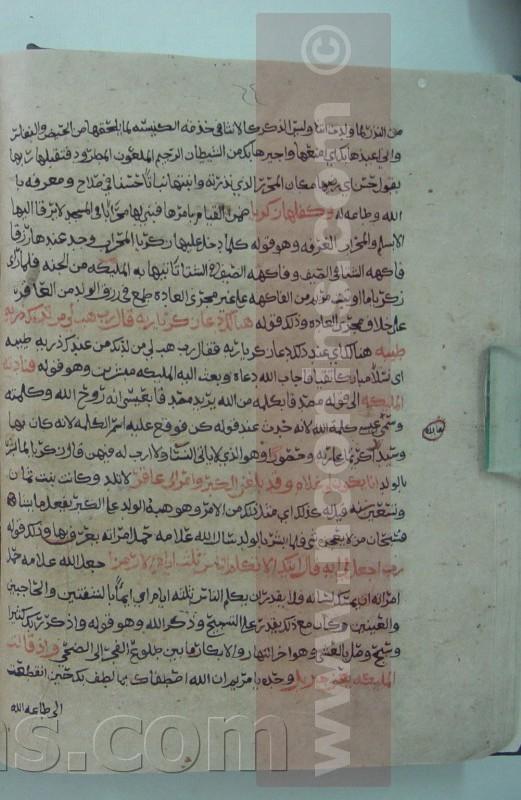 من الذكر لها ولدته انثا وليس الذكر كالانثا في خدمة الكنيسة لما يلحقها من الحيض والنفاس
واني اعيذها بك اي امنعها واجيرها بك من الشيطان الرجيم الملعون المطرود فتقبلها ربها
بقبول حسن اي رضيها مكان المحرر الذي نذرته وانبتها نباتا حسنا في صلاح ومعرفة با
الله وطاعه له وكفلها زكريا ضمن القيام بامرها فبنى لها محرابا في المسجد لا يرقا اليها
الا بسلم والمحراب الغرفه وهو قوله كلما دخل عليها زكريا المحراب وجد عندها رزقا
فاكهه الشتا في الصيف وفاكهه الصيف في الشتا تاتيها به المليكه من الجنه فلما راى
زكريا ما اوتيت مريم من الفاكهه على غير مجرى العاده طمع في رزق الولد من العاقر
على خلاف مجرى العاده وذلك قوله هنالك دعا زكريا ربه قال رب هب لي من لدنك ذريه
طيبه هنالك اي عند ذلك دعا زكريا ربه فقال رب هب لي من لدنك من عندك ذريه طيبه
اي نسلا مباركا تقيا فاجاب الله دعاه وبعث اليه المليكه مبشرين وهو قوله فنادته
المليكه الى قوله مصدقا بكلمه من الله يريد مصدقا بعيسى انه روح الله وكلمته
وسمي عيسى كلمة الله لانه حدث عند قوله كن فوقع عليه اسم الكلمه لانه كان بها
وسيدا كريما على ربه وحصورا وهو الذي لا ياتي النسا ولا ارب له فيهن قال زكريا لما بشر
بالولد انا يكون لي غلام وقد بلغني الكبر وامراتي عاقر لا تلد وكانت بنت ثمان
وتسعين سنه قيل له كذلك اي مثل ذلك من الامر وهو هبة الولد على الكبر يفعل ما يشا
فسبحان من لا يعجزه شي فلما بشر بالولد سال الله علامه حمل امراته يعرف بها وذلك قوله
رب اجعل لي ايه قال ايتك الا تكلم الناس ثلثة ايام الا رمزا جعل الله علامه حمل
امراته ان يمسك لسانه فلا يقدر ان يكلم الناس ثلثه ايام الا ايماء بالشفتين والحاجبين
والعينين وكان مع ذلك يقدر على التسبيح وذكر الله وهو قوله واذكر ربك كثيرا
وسبح وصل بالعشي وهو اخر النهار والابكار ما بين طلوع الفجر الى الضحى واذ قالت
المليكه يعني جبريل وحده يا مريم ان الله اصطفاك بما لطف بك حين انقطعت
الى طاعه الله
www.mpcoms.com ©
ns.com